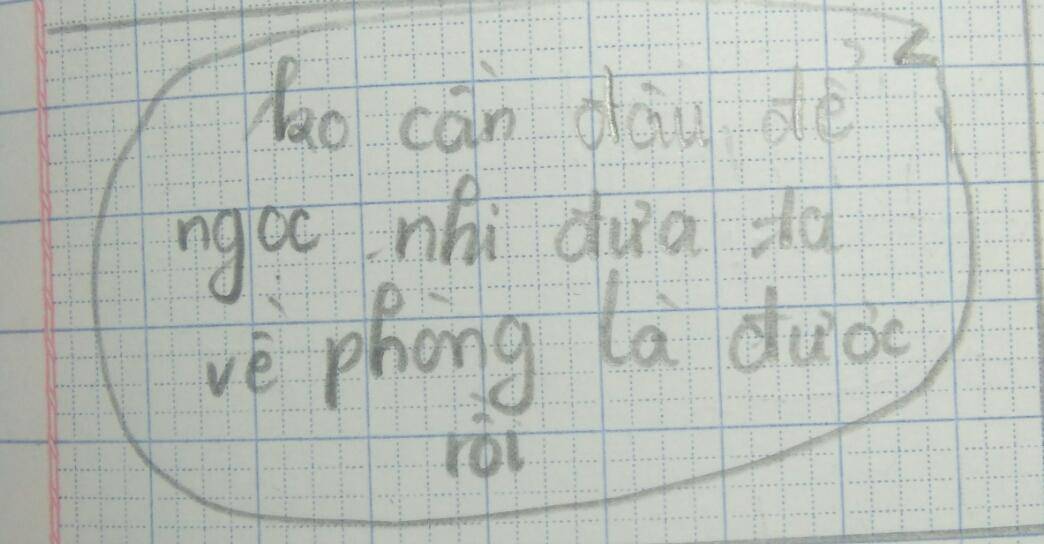 ko cần đâu, để
ngọc nhi đưa ta
về phòng là được
rồi